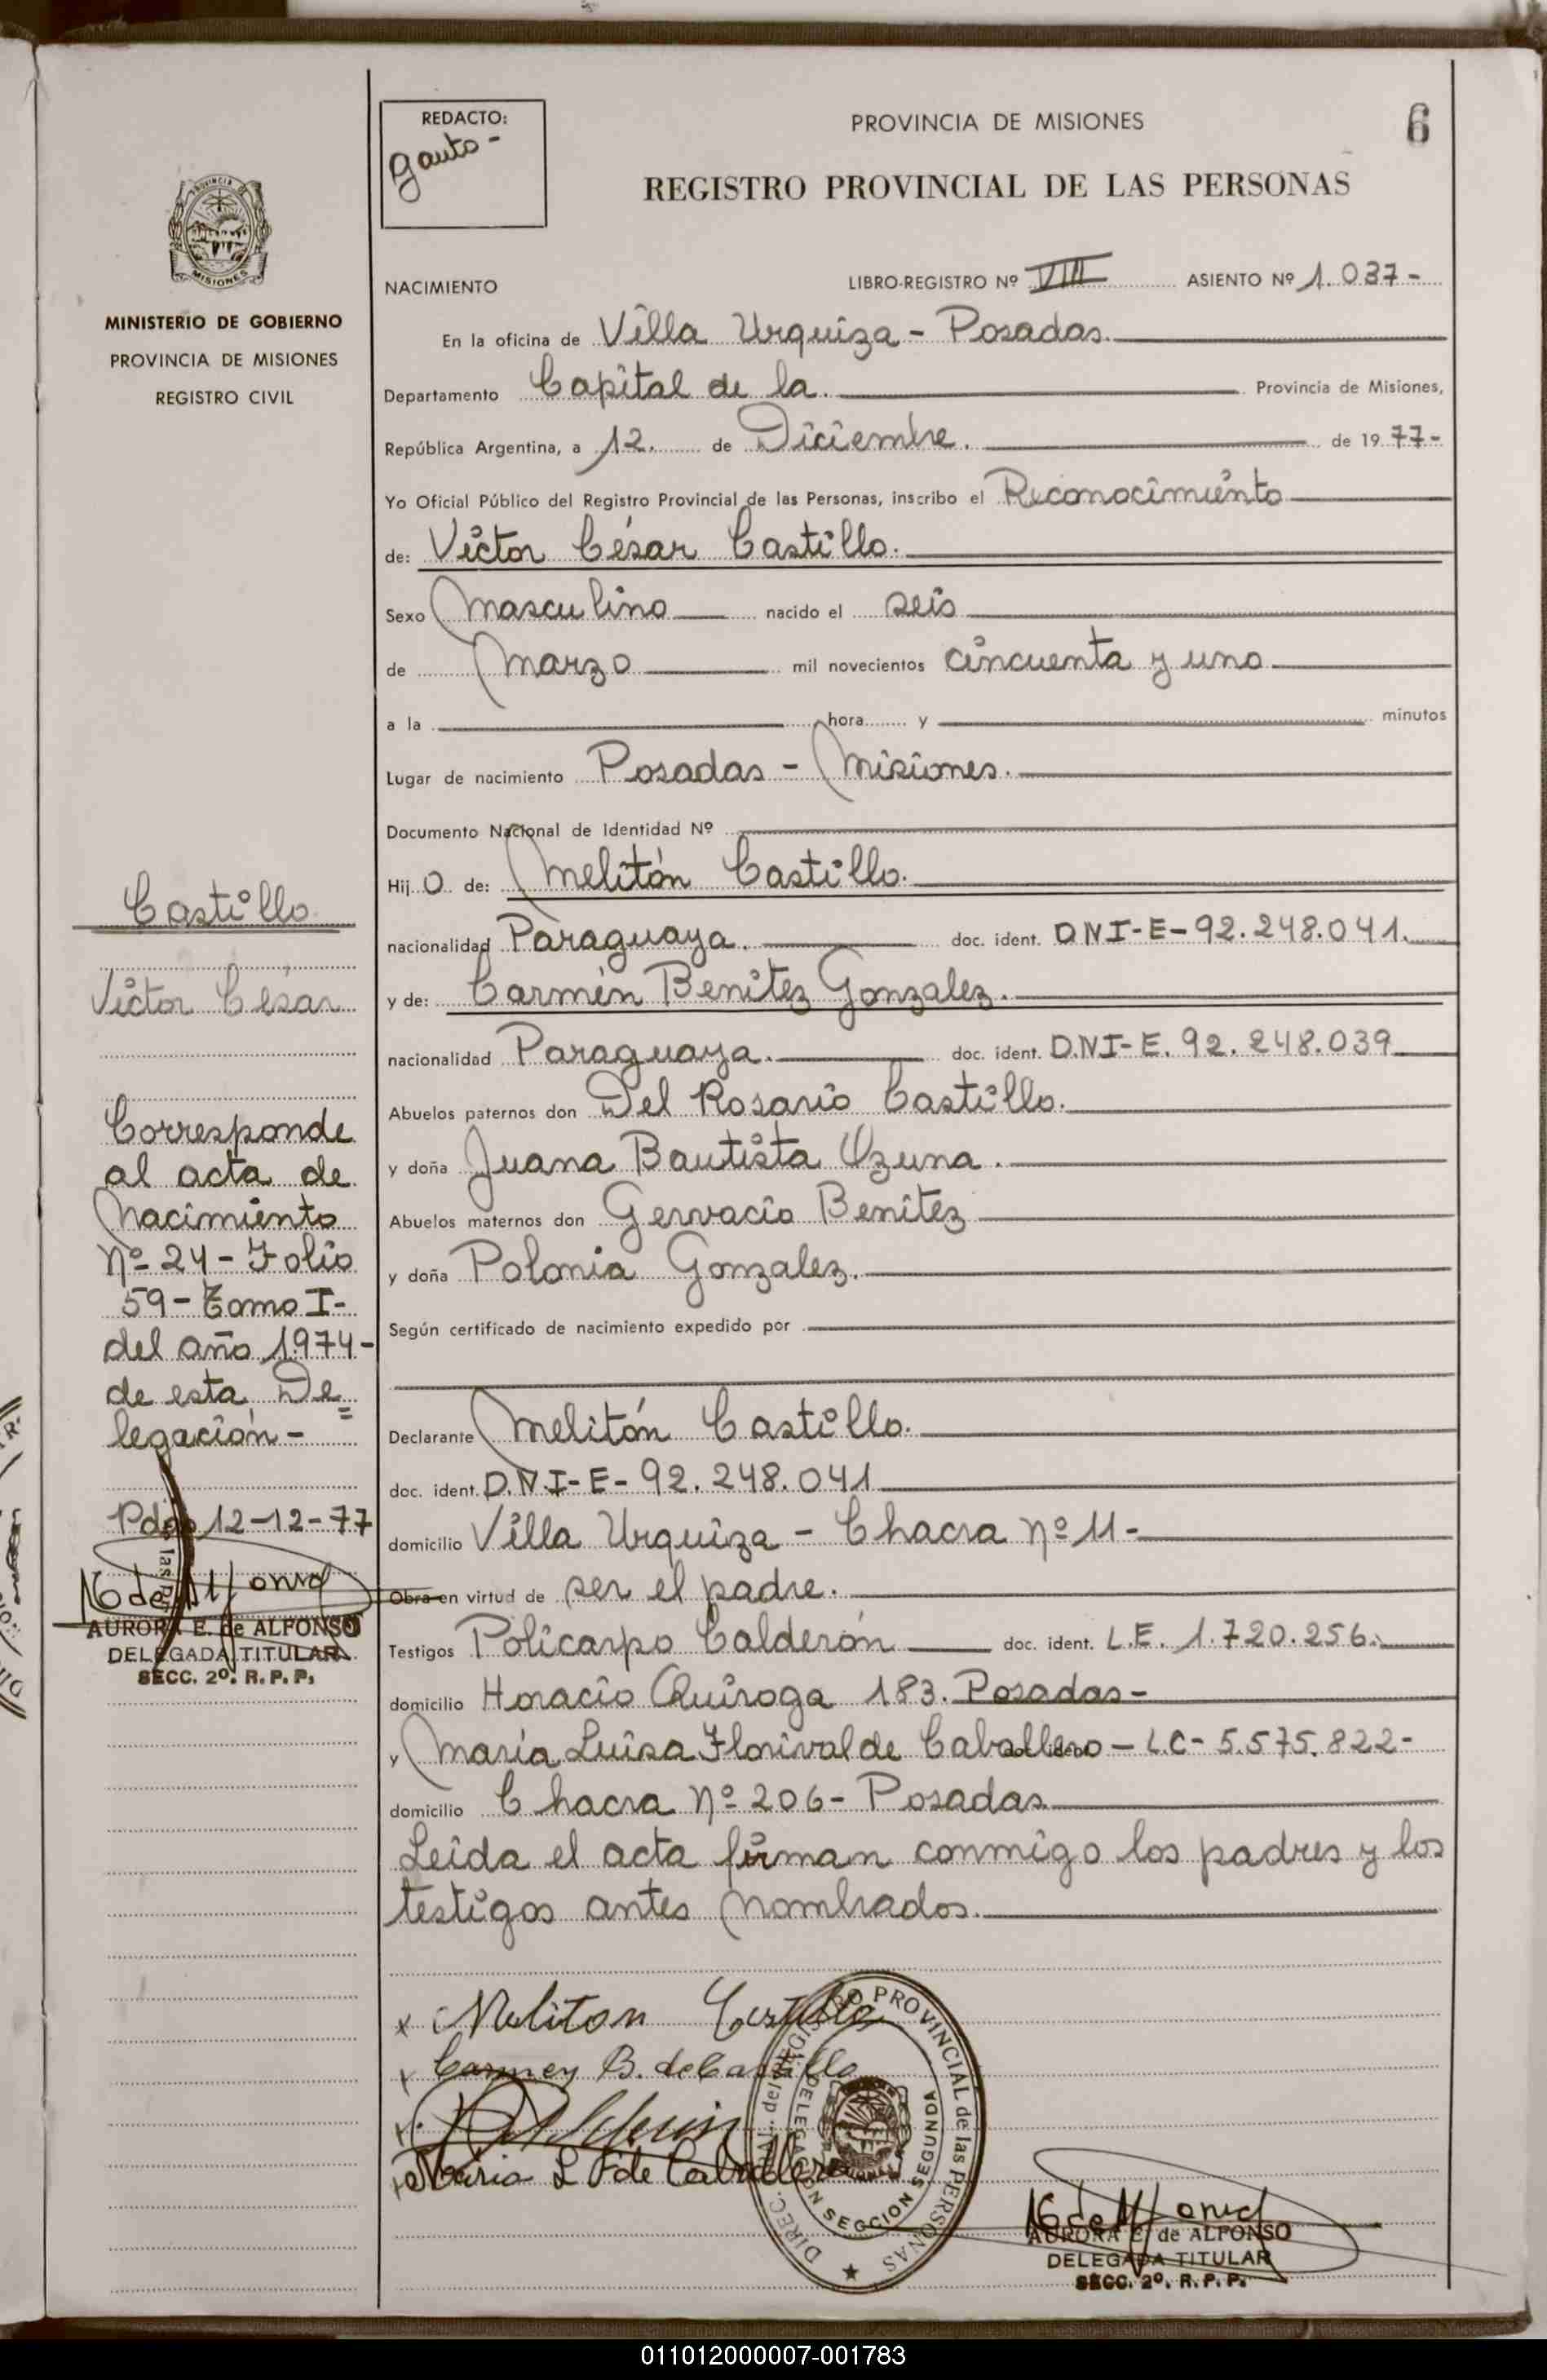 6
REDACTO:
Gauto-
PROVINCIA DE MISIONES
REGISTRO PROVINCIAL DE LAS PERSONAS
PROVINCIA DE
MISIONES
MINISTERIO DE GOBIERNO
PROVINCIA DE MISIONES
REGISTRO CIVIL
NACIMIENTO LIBRO-REGISTRO Nº VIII ASIENTO Nº 1.037-
En la oficina de Villa Urquiza - Posadas.
Departamento Capital de la. Provincia de Misiones,
República Argentina, a 12. de Diciembre. de 1977-
Yo Oficial Público del Registro Provincial de las Personas, inscribo el Reconocimiento
de: Víctor César Castillo.
Sexo Masculino nacido el seis
de Marzo mil novecientos cincuenta y uno
a la hora y minutos
Lugar de nacimiento Posadas - Misiones.
Documento Nacional de Identidad Nº
Hijo de: Melitón Castillo.
nacionalidad Paraguaya. doc. ident. DNI-E-92.248.041.
y de: Carmén Benitez Gonzalez.
nacionalidad Paraguaya. doc. ident. D.NI-E. 92.248.039
Abuelos paternos don Del Rosario Castillo.
y doña Juana Bautista Ozuna.
Abuelos maternos don Gervacio Benitez
y doña Polonia Gonzalez.
Según certificado de nacimiento expedido por
Declarante Melitón Castillo.
doc. ident. D.N.I-E- 92.248.041
domicilio Villa Urquiza - Chacra nº 11-
Obra en virtud de ser el padre.
Testigos Policarpo Calderón doc. ident. L.E. 1.720.256.
domicilio Horacio Quiroga 183. Posadas-
y María Luisa Florival de Caballero - L.C- 5.575.822-
domicilio Chacra nº 206- Posadas
Leida el acta firman conmigo los padres y los
testigos antes nombrados.
Castillo
Víctor César
Corresponde
al acta de
Nacimiento
Nº 24 - Folio
59 - Tomo I-
del año 1974-
de esta De=
legación -
Pdas 12-12-77
AURORA E. de ALFONSO
DELEGADA TITULAR
SECC. 2º. R. P. P.
x Meliton Castillo
x Carmen B. de Castillo
x
x Maria L F de Caballero
DIREC. GRAL. del REGISTRO PROVINCIAL de las PERSONAS
DELEGACION SECCION SEGUNDA
AURORA E. de ALFONSO
DELEGADA TITULAR
SECC. 2º. R. P. P.
011012000007-001783